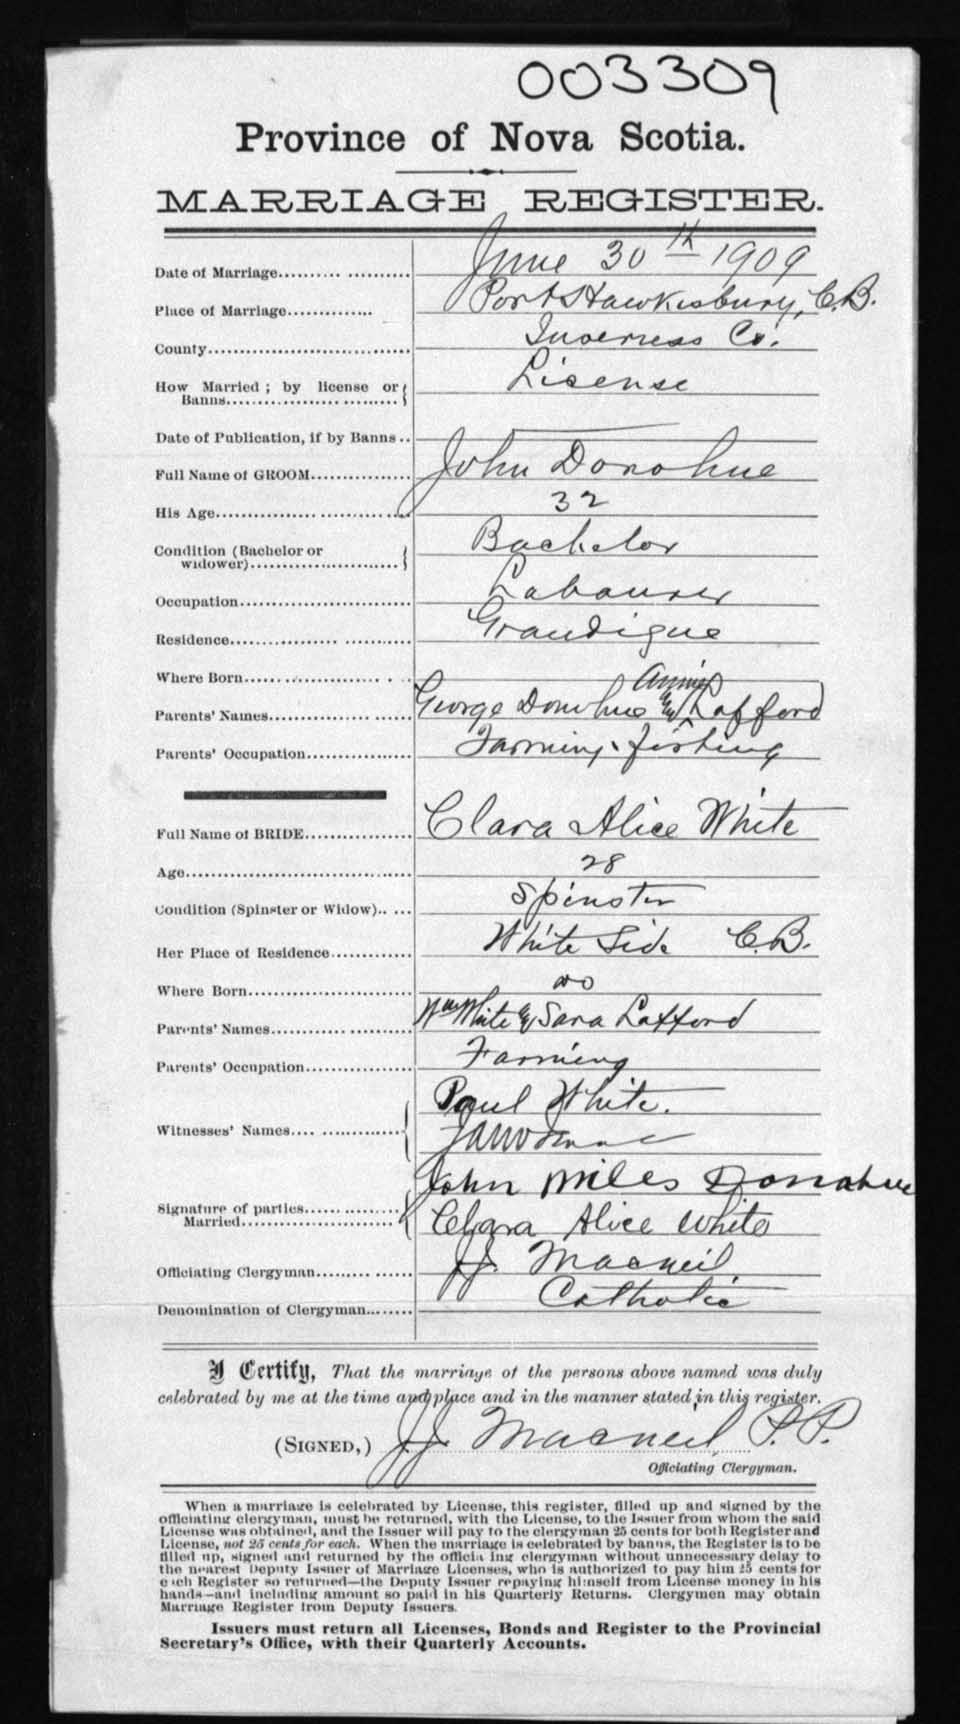 003309
Province of Nova Scotia.
MARRIAGE REGISTER.
Date of Marriage.......... ........... June 30th 1909
Place of Marriage.............. Port Hawkesbury, C.B.
County................................ Inverness Co.
How Married ; by license or Lisense
Banns.................. .........
Date of Publication, if by Banns ..
Full Name of GROOM............... John Donohue
His Age............... ............... 32
Condition (Bachelor or Bachelor
widower)..........................
Occupation........................... Labourer
Residence............... ........... Grandigue
Where Born..... ................ . ..
Annie
Parents' Names................ ...... George Donohue & Lafford
Parents' Occupation................. Farming & fishing
Full Name of BRIDE................. Clara Alice White
Age..................................... 28
Condition (Spinster or Widow).. ... Spinster
Her Place of Residence............. White Side C.B.
Where Born........................... do
Parents' Names............ .......... Wm White & Sara Lafford
Parents' Occupation................. Farming
Paul White.
Witnesses' Names.... ..............
John Miles Donahue
Signature of parties................
Married........................... Clara Alice White
Officiating Clergyman......... ...... J.J. Macneil
Denomination of Clergyman........ Catholic
I Certify, That the marriage of the persons above named was duly
celebrated by me at the time and place and in the manner stated in this register.
(SIGNED,) J.J. Macneil P.P.
Officiating Clergyman.
When a marriage is celebrated by License, this register, filled up and signed by the
officiating clergyman, must be returned, with the License, to the Issuer from whom the said
License was obtained, and the Issuer will pay to the clergyman 25 cents for both Register and
License, not 25 cents for each. When the marriage is celebrated by banns, the Register is to be
filled up, signed and returned by the officia ing clergyman without unnecessary delay to
the nearest Deputy Issuer of Marriage Licenses, who is authorized to pay him 25 cents for
each Register so returned—the Deputy Issuer repaying himself from License money in his
hands—and including amount so paid in his Quarterly Returns. Clergymen may obtain
Marriage Register from Deputy Issuers.
Issuers must return all Licenses, Bonds and Register to the Provincial
Secretary's Office, with their Quarterly Accounts.